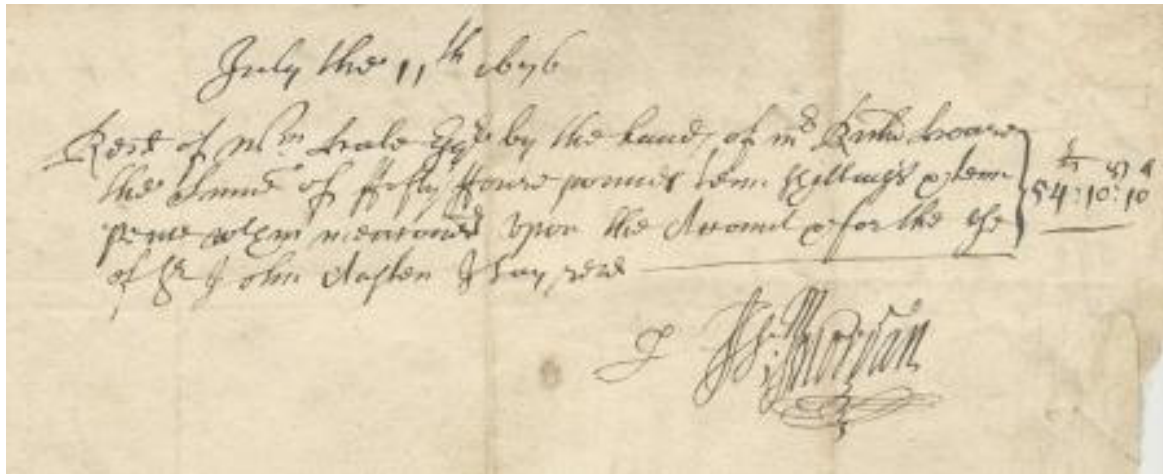 July the 11th 1676
Recd of Wm Hale Esqr by the hand of mr Richd Hoare
the Sume of ffifty ffoure pounds tenn shillings & tenn
pence within mentioned upon the Accomt & for the use
of Sr John Austen I say recd
li s d
54:10:10
P Morgan